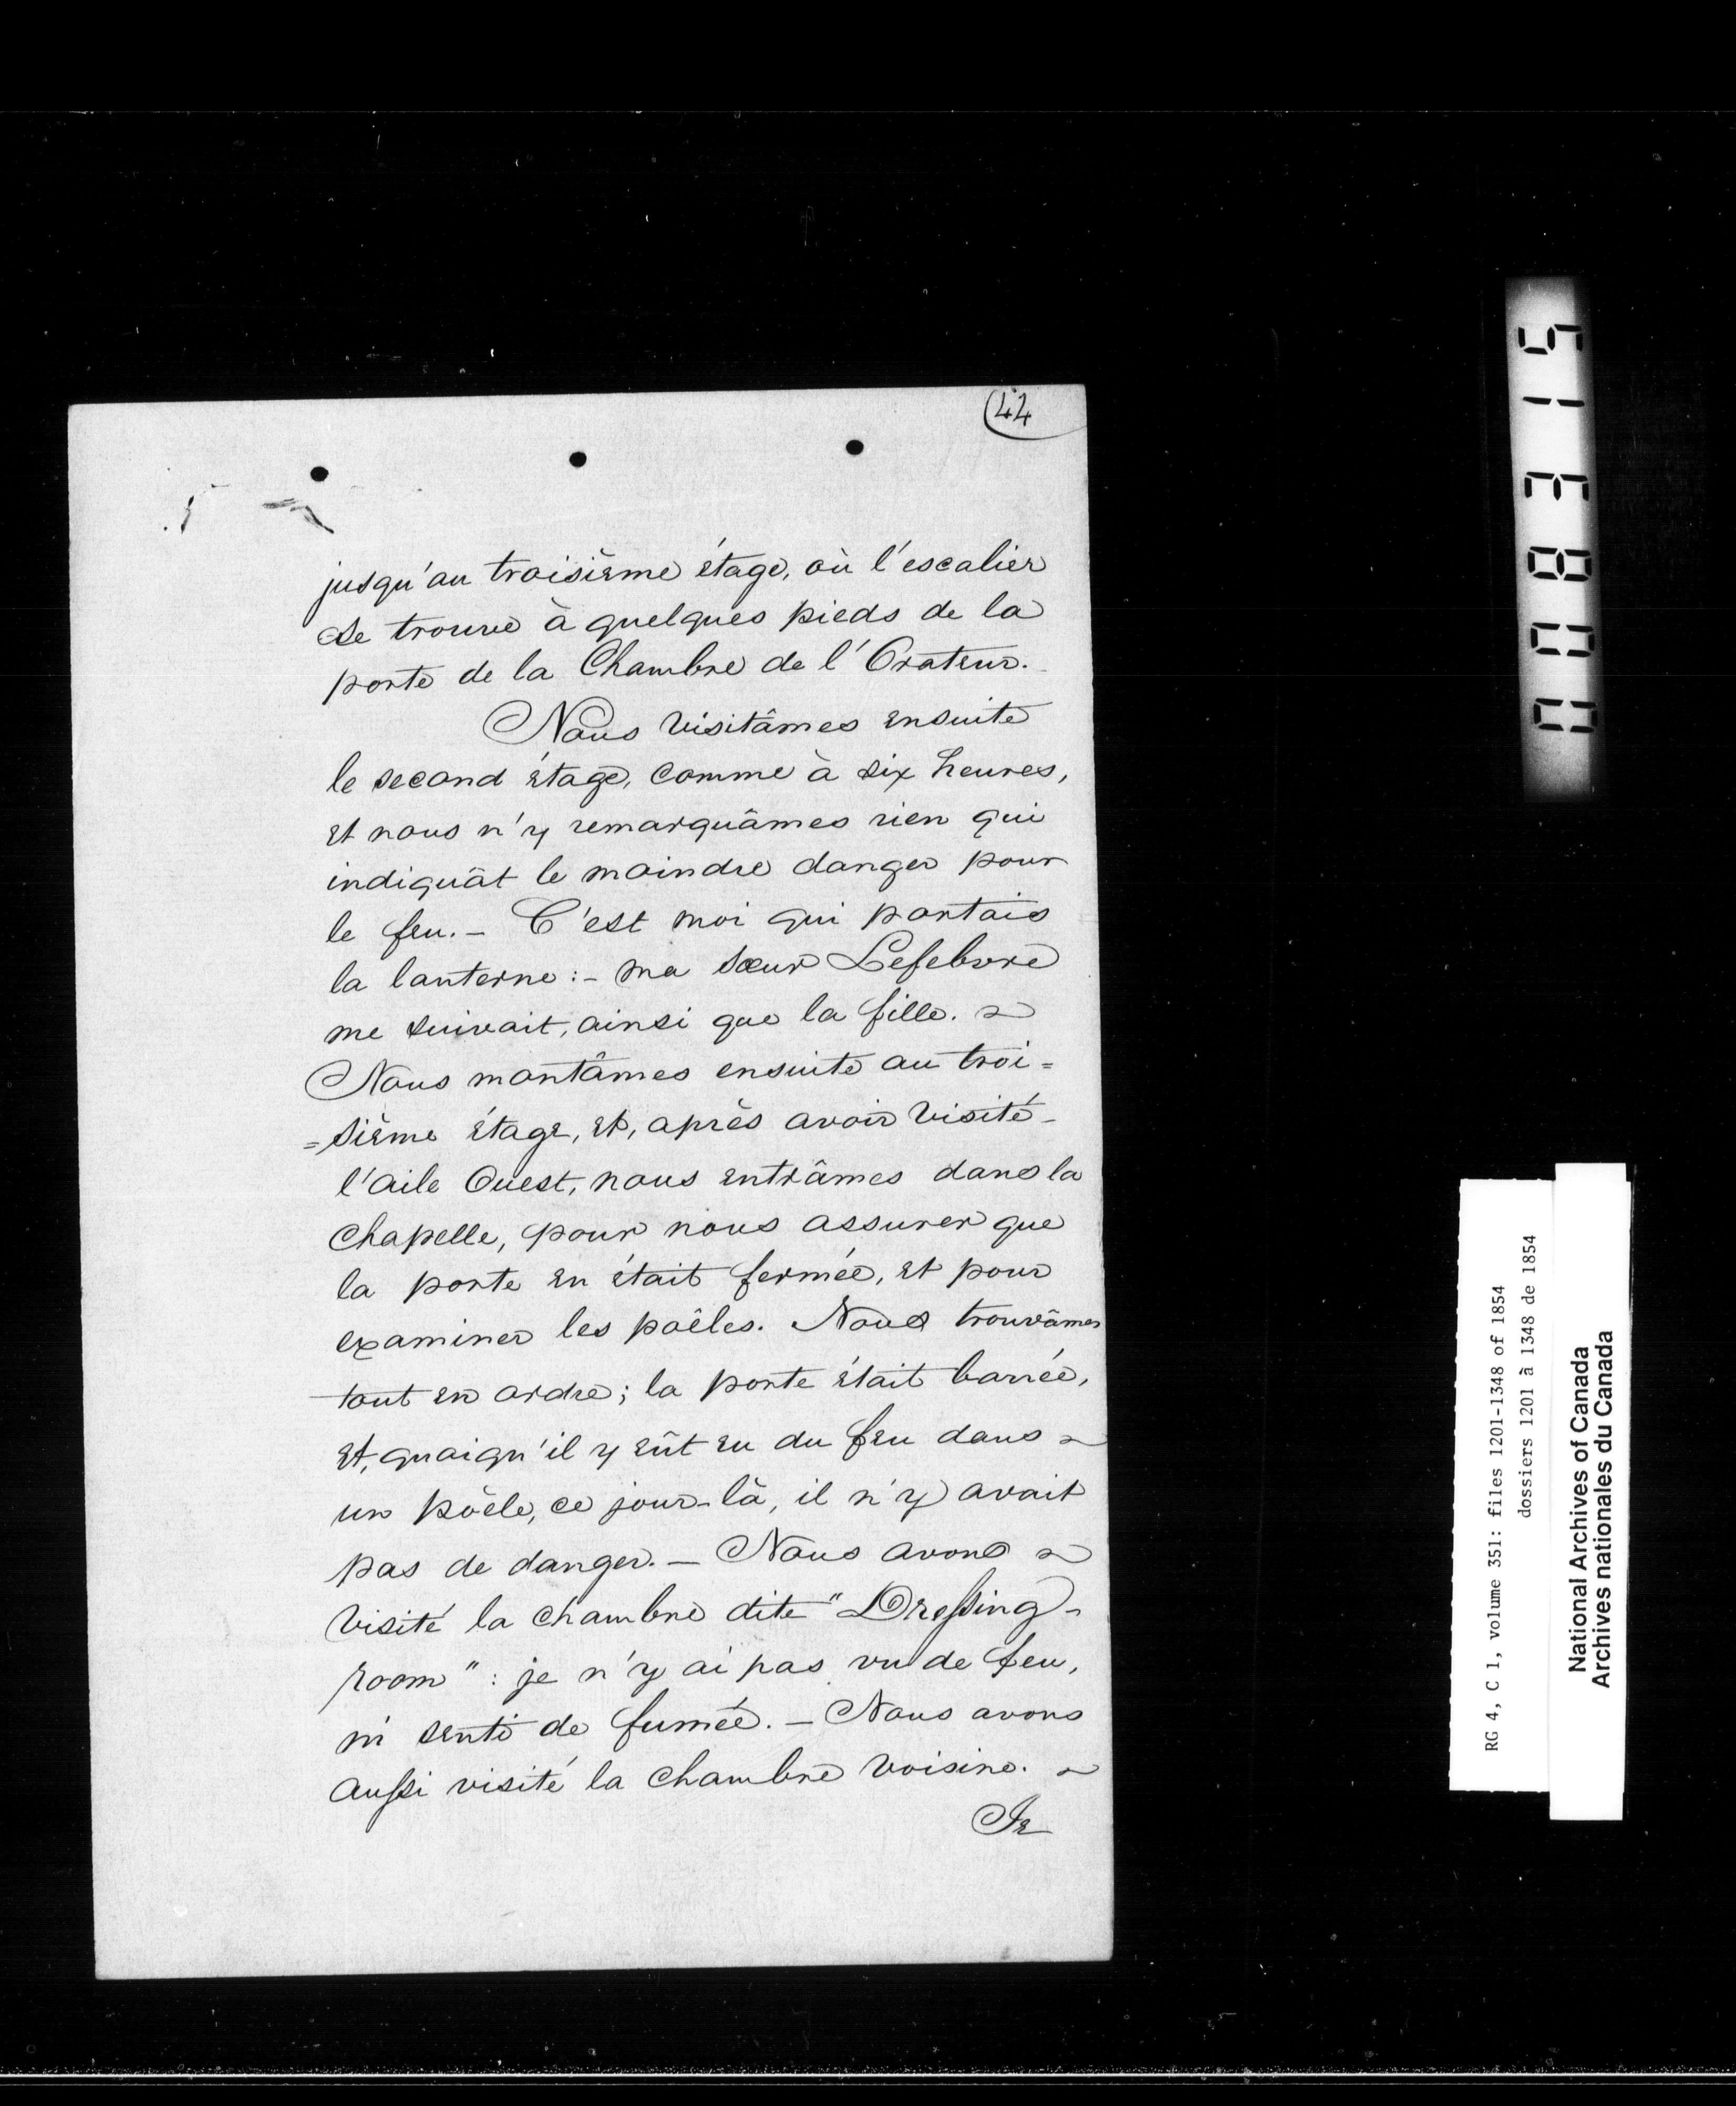 44
jusqu'au troisième étage, où l'escalier
se trouve à quelques pieds de la
porte de la Chambre de l'Orateur.
Nous visitâmes ensuite
le second étage, comme à six heures,
et nous n'y remarquâmes rien qui
indiquât le moindre danger pour
le feu. – C'est moi qui portais
la lanterne :– ma sœur Lefebvre
me suivait, ainsi que la fille. ~
Nous montâmes ensuite au troi=
=sième étage, et, après avoir visité –
l'aile Ouest, nous entrâmes dans la
Chapelle, pour nous assurer que
la porte en était fermée, et pour
examiner les poêles. Nous trouvâmes
tout en ordre; la porte était barrée,
et, quoiqu'il y eût eu du feu dans ~
un poële, ce jour-là, il n'y avait
pas de danger. – Nous avons ~
visité la chambre dite "Dressing-
room" : je n'y ai pas vu de feu,
ni senti de fumée. – Nous avons
aussi visité la chambre voisine. ~
Je
51E800
RG 4, C 1, volume 351: files 1201-1348 of 1854
dossiers 1201 à 1348 de 1854
National Archives of Canada
Archives nationales du Canada